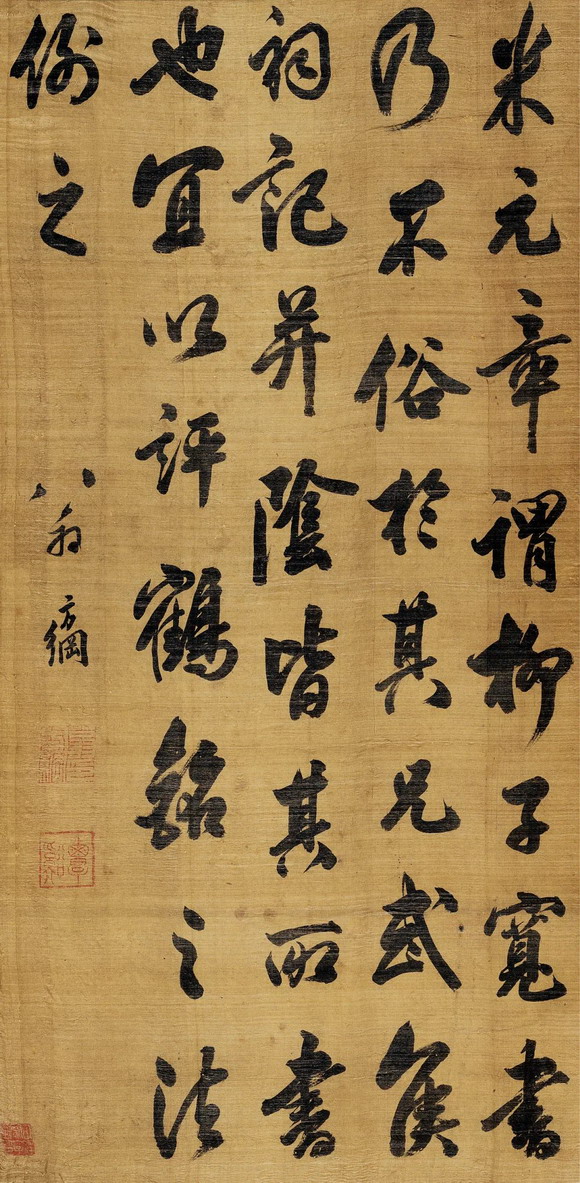 米元章謂柳子寬書
乃不俗於其兄武侯
祠記并陰皆其所書
也宜以評鶴銘之法
例之
翁方綱